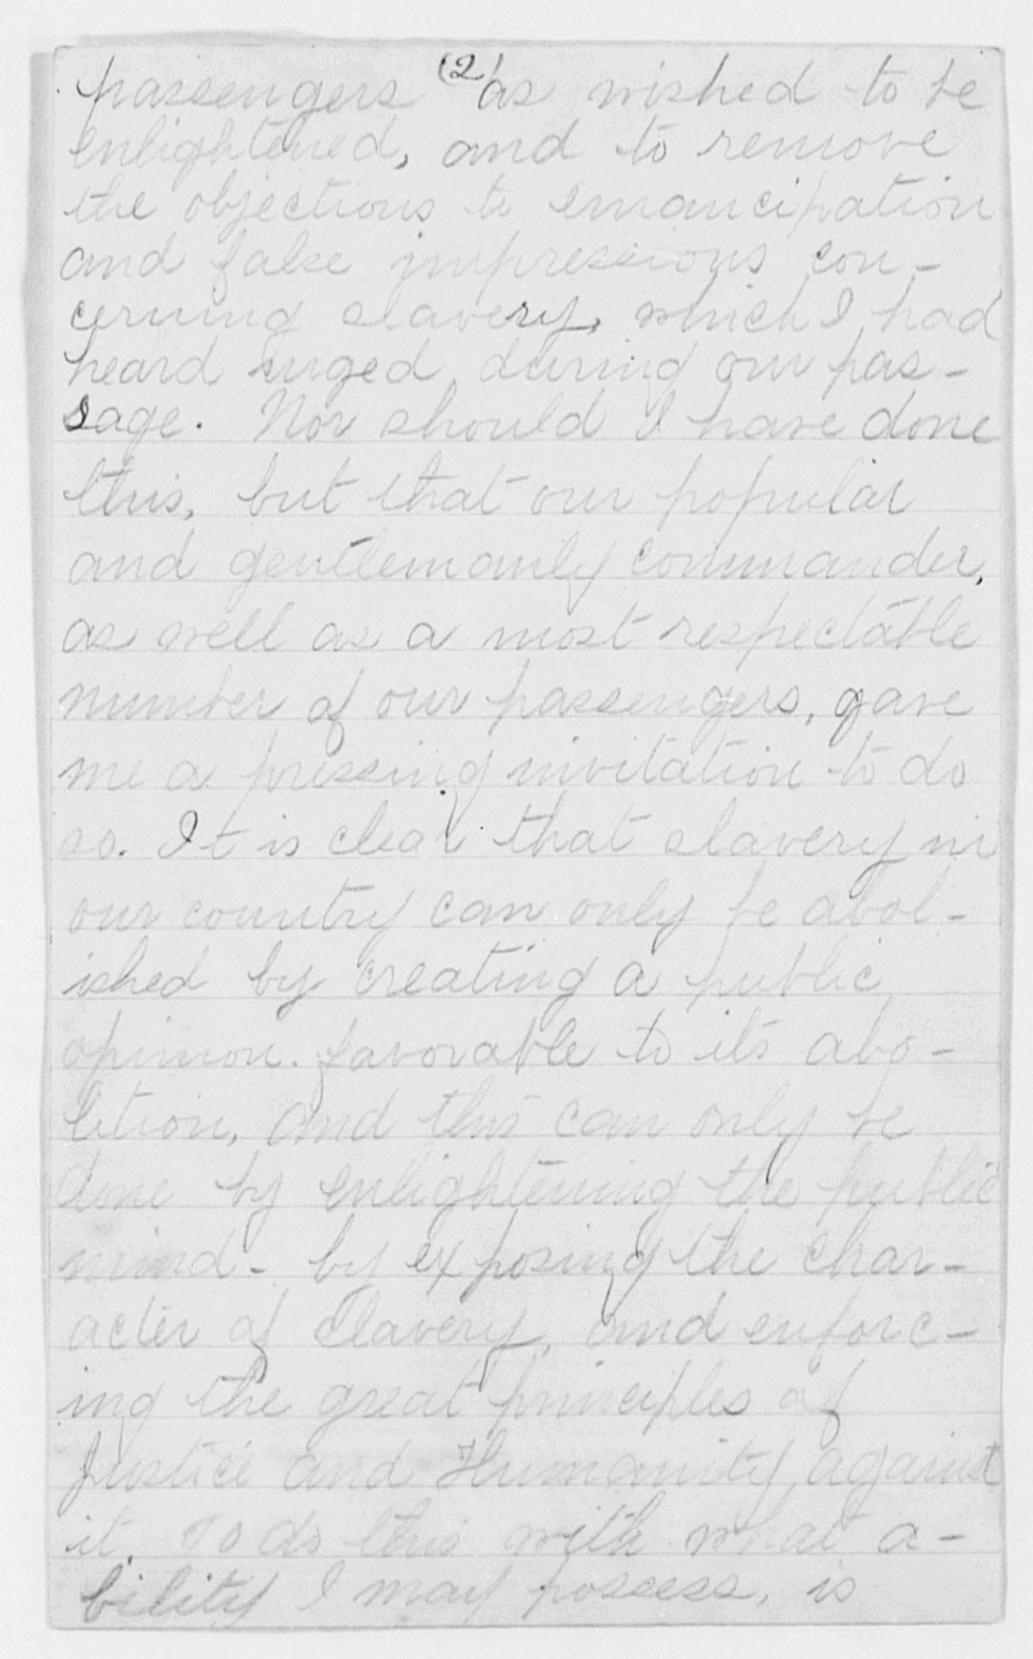 (2)
passengers as wished to be
enlightened, and to remove
the objections to emancipation
and false impressions con-
cerning slavery, which I had
heard urged during our pas-
sage. Nor should I have done
this, but that our popular
and gentlemanly commander,
as well as a most respectable
number of our passengers, gave
me a pressing invitation to do
so. It is clear that slavery in
our country can only be abol-
ished by creating a public
opinion favorable to its abo-
lition, and this can only be
done by enlightening the public
mind - by exposing the char-
acter of slavery, and enforc-
ing the great principles of
justice and Humanity against
it. To do this with what a-
bility I may possess, is